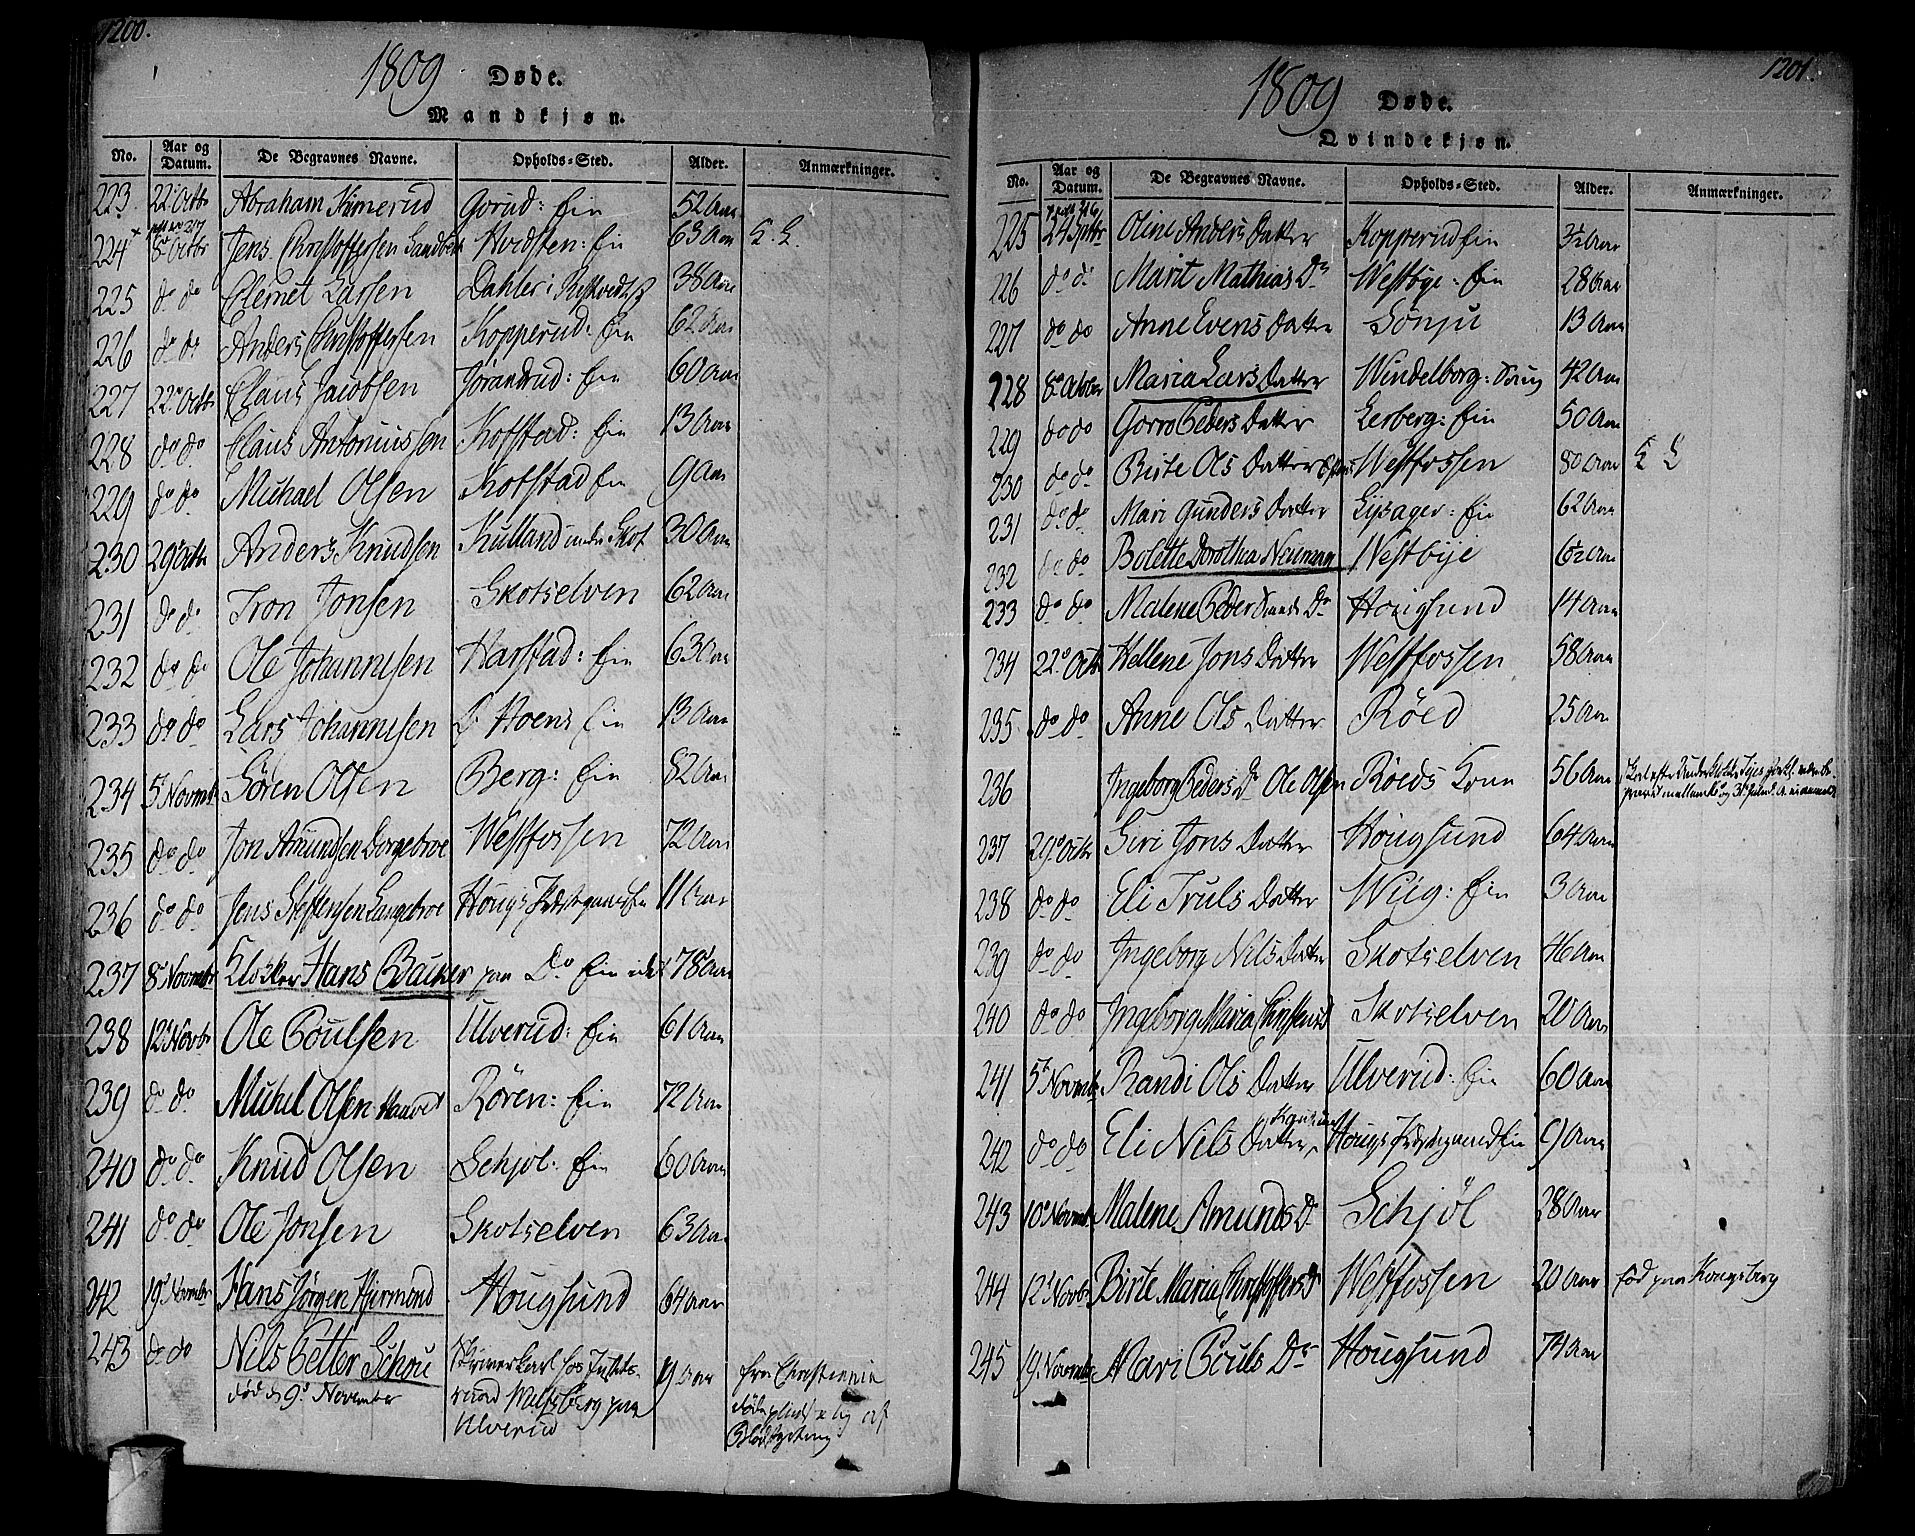 1200.
1809 Døde.
Mandkjøn.
No. Aar og Datum. De Begravnes Navne. Opholds-Sted. Alder. Anmærkninger.
223. 22 Octbr Abraham Kimerud Gorud: Ein 52 Aar
224 8 Octbr Jens Christoffersen Sandbek Hvidsten: Ein 63 Aar L. L.
225 do do Clemet Larsen Dahler i 38 Aar
226 do do Anders Christoffersen Kopperud: Ein 62 Aar
227 22 Octbr Claus Jacobsen Jørandrud: Ein 60 Aar
228 do do Claus Antoniussen Kofstad: Ein 13 Aar
229 do do Michael Olsen Kofstad Ein 9 Aar
230 29 Octbr Anders Knudsen Kulland under Skot. 30 Aar
231 do do Tron Jonsen Skotselven 62 Aar
232 do do Ole Johannesen Harstad: Ein 63 Aar
233 do do Lars Johannesen Hoens Ein 13 Aar
234 5 Novmb Søren Olsen Berg: Ein 82 Aar
235 do do Jon Amundsen Dorgebroe Westfossen 72 Aar
236 do do Jens Steffensen Langebroe Hougs Præstegaard Ein 11 Aar
237 8 Novmbr Klokker Hans Bauker paa Do Ein 78 Aar
238 12 Novbr Ole Poulsen Ulverud: Ein 61 Aar
239 do do Michel Olsen Røren: Ein 72 Aar
240 do do Knud Olsen Schjøl: Ein 60 Aar
241 do do Ole Jonsen Skotselven 63 Aar
242 19 Novmbr Hans Jørgen Hiermond Hougsund 64 Aar
243 do do Nils Petter Schou Skriverkarl hos Justits- 19 Aar fra Christiania
død d 9 November raad paa
Ulverud
Blodstyrtning
1201.
1809 Døde.
Qvindekjøn.
No. Aar og Datum. De Begravnes Navne. Opholds-Sted. Alder. Anmærkninger.
225 24 Septbr Oline Anders Datter Kopperud Ein 3½ Aar
226 do do Marit Mathias Dr Westbye: Ein 28 Aar
227 do do Anne Evens Datter Sønju 13 Aar
228 8 Octobr Maria Lars Datter Windelborg: 42 Aar
229 do do Gorro Peders Datter Lerberg: Ein 50 Aar
230 do do Birte Ols Datter Westfossen 80 Aar L L
231 do do Mari Gunders Datter Lysager: Ein 62 Aar
232 do do Bolette Dorothea Neumann Westbye 6½ Aar
233 do do Malene Peder Dr Hougsund 14 Aar
234 22 Octbr Hellene Jons Datter Westfossen 58 Aar
235 do do Anne Ols Datter Røed 25 Aar
236 Ingeborg Peders Dr Ole Olsen Røeds Kone 56 Aar
237 29 Octbr Siri Jons Datter Hougsund 64 Aar
238 do do Eli Truls Datter Wiig: Ein 3 Aar
239 do do Ingeborg Nils Datter Skotselven 46 Aar
240 do do Ingeborg Maria Christensd Skotselven 20 Aar
241 5 Novmbr Randi Ols Datter Ulverud: Ein 60 Aar
242 do do Eli Nils Datter Hougs Præstegaard Ein 9 Aar
243 10 Novmbr Malene Amunds Dr Schjøl 28 Aar
244 12 Novbr Birte Maria Christoffers Dr Westfossen 20 Aar fød paa Kongsberg
245 19 Novmbr Mari Pouls Dr Hougsund 74 Aar